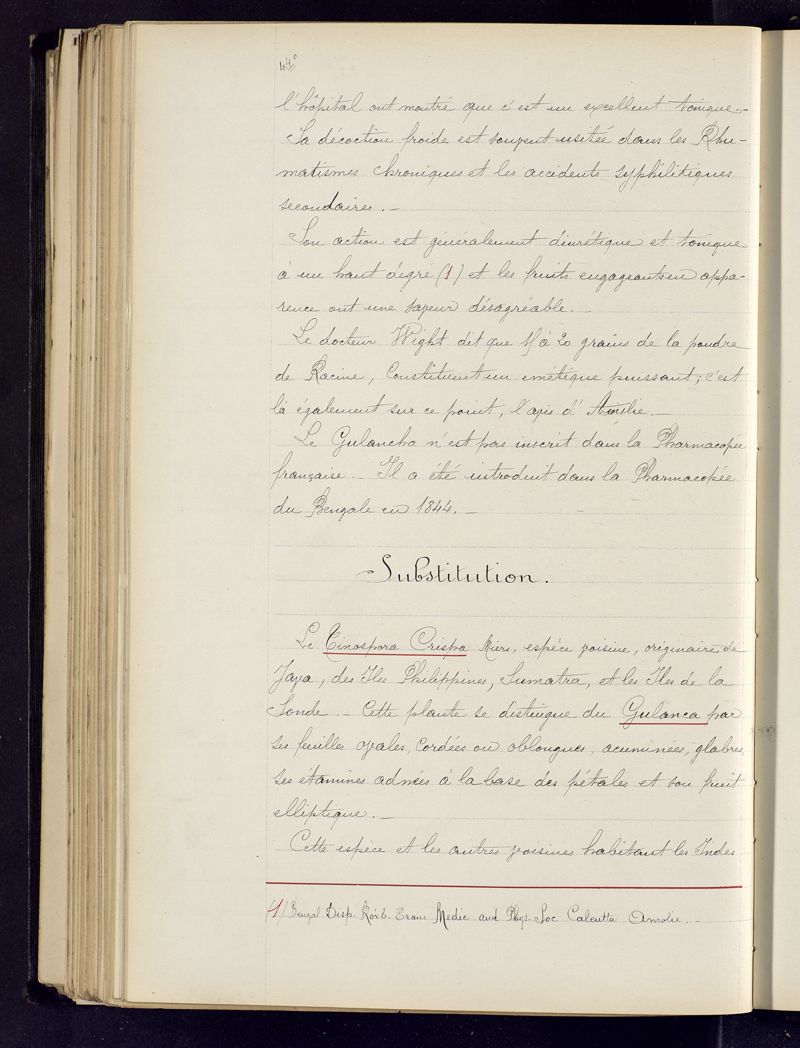 l'hôpital ont montré que c'est un excellent tonique.-
Sa décoction froide est souvent usitée dans les Rhu-
matismes chroniques et les accidents syphilitiques
secondaires.-
Son action est généralement diurétique et tonique
à un haut degré (1) et les fruits engageants en appa-
rence ont une saveur désagréable.-
Le docteur Wight dit que 15 à 20 grains de la poudre
de Racine, Constituent un émétique puissant; c'est
là également sur ce point, l'avis d'
Le Gulancha n'est pas inscrit dans la Pharmacopée
française.- Il a été introduit dans la Pharmacopée
du Bengale en 1844.-
Substitution.
Le Tinospora Crispa Miers, espèce voisine, originaire de
Java, des Iles Philippines, Sumatra, et les Iles de la
Sonde.- Cette plante se distingue du Gulanca par
ses feuilles ovales, cordées ou oblongues, acuminées, glabres,
ses étamines adnées à la base des pétales et son fruit
elliptique.-
Cette espèce et les autres voisines habitant les Indes
(1) Bengal Disp. Roxb. Trans Medic and Phys. Soc Calcutta